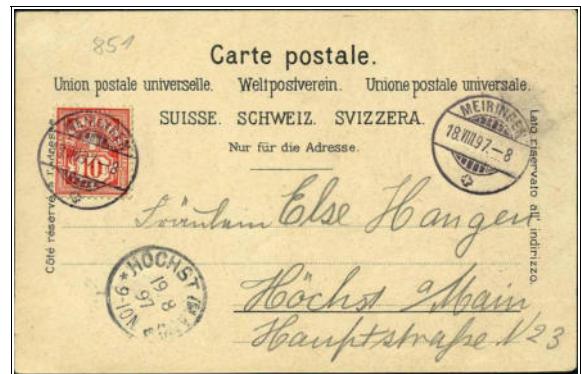 851
Carte postale.
Union postale universelle. Weltpostverein. Unione postale universale.
SUISSE. SCHWEIZ. SVIZZERA.
Nur für die Adresse.
Côté réservé à l'adresse.
Lato riservato all' indirizzo.
10
MEIRINGEN
18.VIII.97.–8
Fräulein Else Hangen
Höchst a/Main
Hauptstraße N 23
HÖCHST
19 8
97
6-7 N